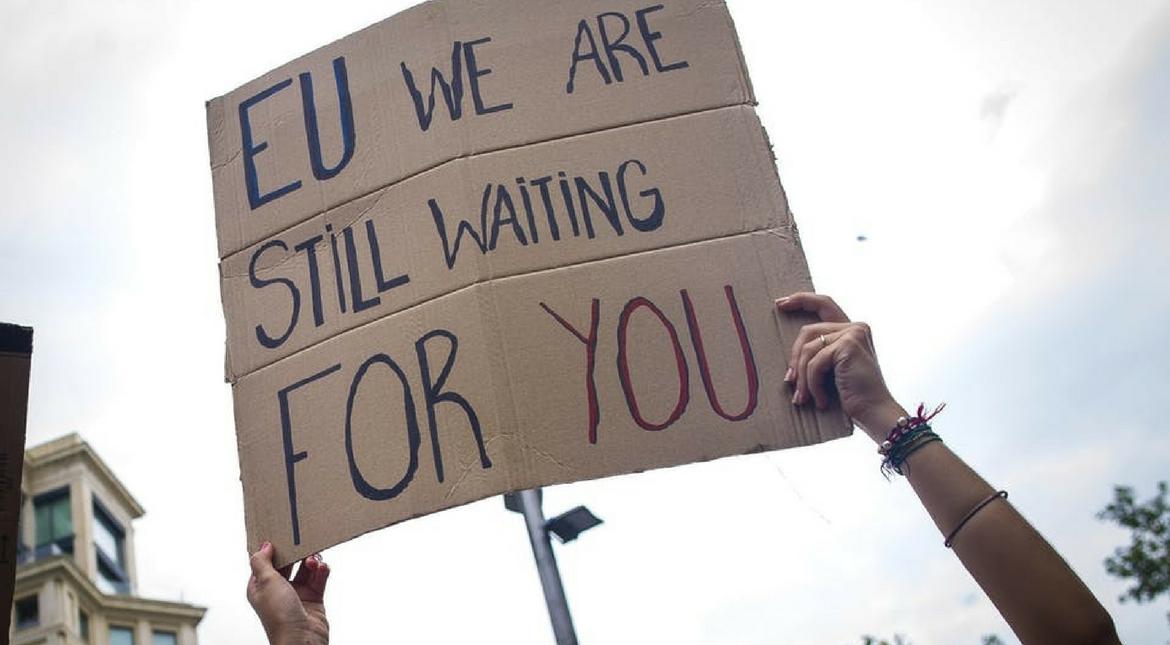 EU WE ARE
STiLL WAiTiNG
FOR YOU